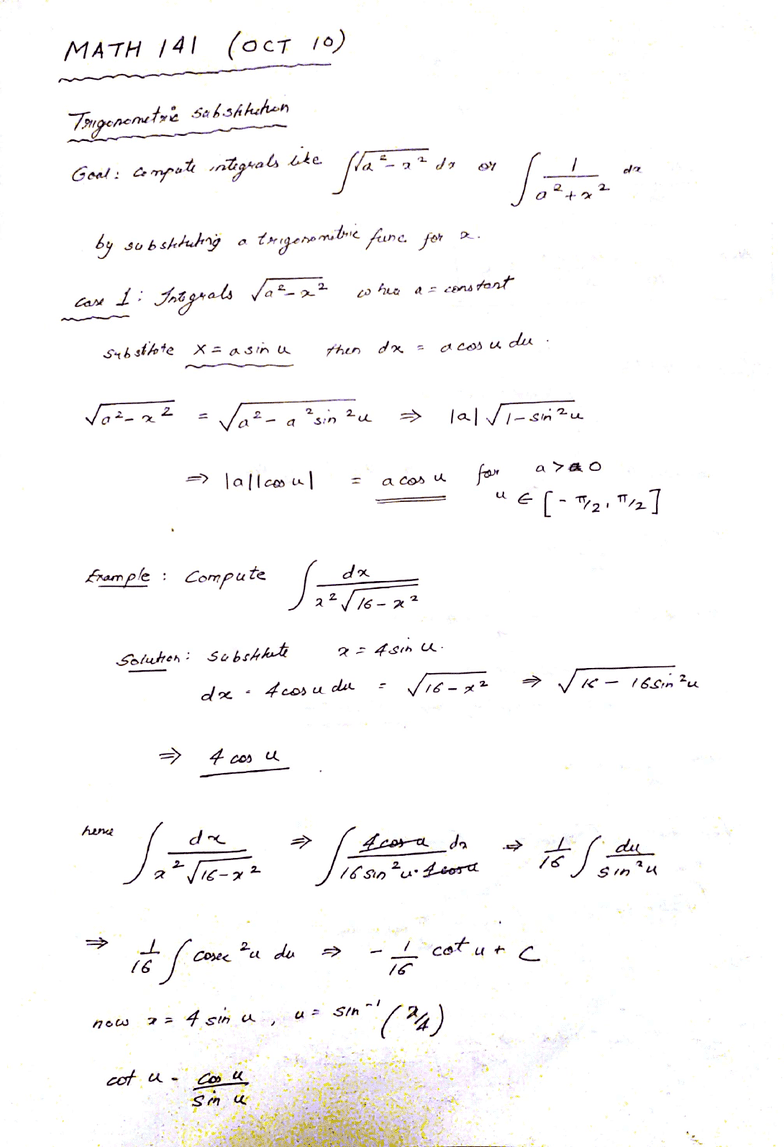 MATH 141 (OCT 10)
Trigonometric Substitution
Goal: Compute integrals like ∫√(a² - x²) dx or ∫ 1/(a² + x²) dx
by substituting a trigonometric func for x.
Case 1: Integrals √(a² - x²) where a = constant
Substitute X = a sin u then dx = a cos u du.
√(a² - x²) = √(a² - a² sin²u) ⇒ |a| √(1 - sin²u)
⇒ |a||cos u| = a cos u for a > 0
u ∈ [-π/2, π/2]
Example: Compute ∫ dx/(x²√(16 - x²))
Solution: Substitute x = 4 sin u.
dx = 4 cos u du = √(16 - x²) ⇒ √(16 - 16 sin²u)
⇒ 4 cos u
hence ∫ dx/(x²√(16 - x²)) ⇒ ∫ 4 cos u dx/(16 sin²u · 4 cos u) ⇒ 1/16 ∫ du/sin²u
⇒ 1/16 ∫ cosec²u du ⇒ - 1/16 cot u + C
now x = 4 sin u, u = sin⁻¹(x/4)
cot u = cos u/sin u